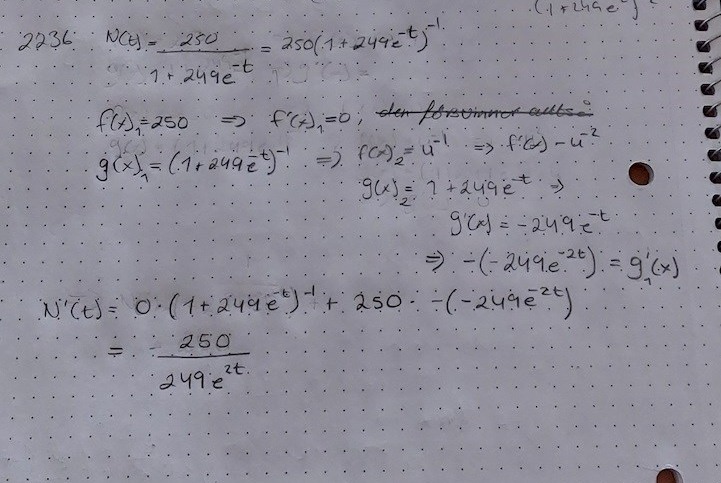 (1+249e
2236 N(t) = 250 / 1+249e^-t = 250(1+249e^-t)^-1
f(x)₁=250 ⇒ f'(x)₁=0, den försvinner alltså
g(x)₁=(1+249e^-t)^-1 ⇒ f(x)₂=u^-1 ⇒ f'(x) -u^-2
g(x)₂= 1+249e^-t ⇒
g'(x) = -249e^-t
⇒ -(-249e^-2t) = g'₁(x)
N'(t)= 0·(1+249e^-t)^-1 + 250 · -(-249e^-2t)
= 250 / 249e^2t